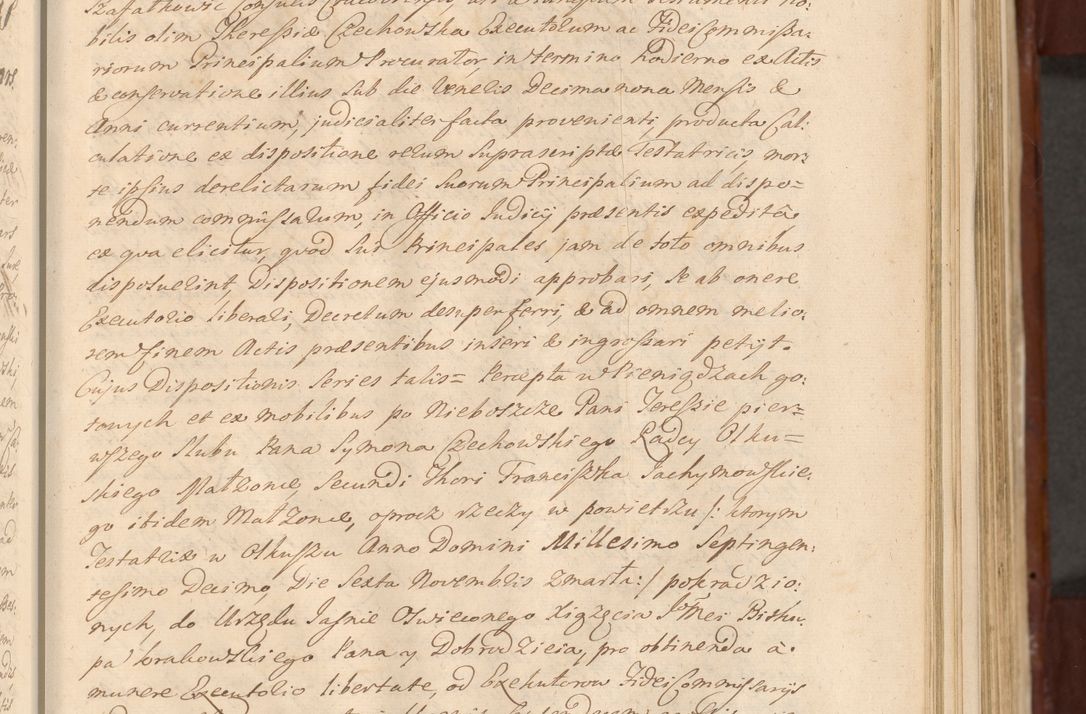 bilis olim Theressiæ Czechowska Executorum ac Fideicommissa:
riorum Principalium Procurator, in termino hodierno ex Actis
& conservatione illius sub die Veneris Decima nona Mensis &
Anni currentium, judicialiter facta provenienti, producta Cal:
culatione ex dispositione rerum suprascriptæ Testatricis, mor:
te ipsius derelictarum fidei suorum Principalium ad dispo=
nendum commissarum, in Officio Judicij præsentis expedita.
ex qva elicitur, qvod sui Principales jam de toto omnibus
disposuerint, Dispositionem ejusmodi approbari, se ab onere
Executorio liberari, Decretum desuper ferri, & ad omnem melio:
rem finem Actis præsentibus inseri & ingrossari petijt.
Cujus Dispositionis Series talis= Percepta w Pieniądzach go:
towych et ex mobilibus po Nieboszcze Pani Teressie pier=
wszego Slubu Pana Symona Czechowskiego Radcy Olku=
skiego Małzonce, Secundi Thori Franciszka Jachymowskie:
go ibidem Małzonce, oprocz rzeczy w powietrzu /: ktorym
Testatrix w Olkuszu Anno Domini Millesimo Septingen:
tesimo Decimo Die Sexta Novembris zmarła :/ pokradzio:
nych, do Urzędu Jasnie Oswieconego Xiązęcia Jmci Bisku:
pa Krakowskiego Pana y Dobrodzieia, pro obtinenda à.
munere Executorio libertate, od Exekutorow Fideicommissarijs